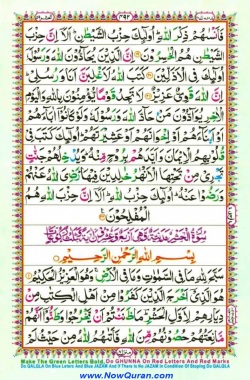 ۳۹۲
فَاَنْسٰىهُمْ ذِكْرَ اللّٰهِ ؕ اُولٰٓئِكَ حِزْبُ الشَّیْطٰنِ ؕ اَلَاۤ اِنَّ حِزْبَ
الشَّیْطٰنِ هُمُ الْخٰسِرُوْنَ اِنَّ الَّذِیْنَ یُحَآدُّوْنَ اللّٰهَ وَ رَسُوْلَهٗۤ
اُولٰٓئِكَ فِی الْاَذَلِّیْنَ كَتَبَ اللّٰهُ لَاَغْلِبَنَّ اَنَا وَ رُسُلِیْ ؕ
اِنَّ اللّٰهَ قَوِیٌّ عَزِیْزٌ لَا تَجِدُ قَوْمًا یُّؤْمِنُوْنَ بِاللّٰهِ وَ الْیَوْمِ
الْاٰخِرِ یُوَآدُّوْنَ مَنْ حَآدَّ اللّٰهَ وَ رَسُوْلَهٗ وَ لَوْ كَانُوْۤا اٰبَآءَهُمْ
اَوْ اَبْنَآءَهُمْ اَوْ اِخْوَانَهُمْ اَوْ عَشِیْرَتَهُمْ ؕ اُولٰٓئِكَ كَتَبَ فِیْ
قُلُوْبِهِمُ الْاِیْمَانَ وَ اَیَّدَهُمْ بِرُوْحٍ مِّنْهُ ؕ وَ یُدْخِلُهُمْ جَنّٰتٍ
تَجْرِیْ مِنْ تَحْتِهَا الْاَنْهٰرُ خٰلِدِیْنَ فِیْهَا ؕ رَضِیَ اللّٰهُ عَنْهُمْ
وَ رَضُوْا عَنْهُ ؕ اُولٰٓئِكَ حِزْبُ اللّٰهِ ؕ اَلَاۤ اِنَّ حِزْبَ اللّٰهِ هُمُ
الْمُفْلِحُوْنَ
بِسْمِ اللّٰهِ الرَّحْمٰنِ الرَّحِیْمِ
سَبَّحَ لِلّٰهِ مَا فِی السَّمٰوٰتِ وَ مَا فِی الْاَرْضِ ۚ وَ هُوَ الْعَزِیْزُ الْحَكِیْمُ
هُوَ الَّذِیْۤ اَخْرَجَ الَّذِیْنَ كَفَرُوْا مِنْ
ظَنَنْتُمْ اَنْ یَّخْرُجُوْا وَ ظَنُّوْۤا اَنَّهُمْ
مَّانِعَتُهُمْ حُصُوْنُهُمْ مِّنَ اللّٰهِ فَاَتٰىهُمُ اللّٰهُ مِنْ حَیْثُ لَمْ
Make The Green Letters Bold, Do GHUNNA On Red Letters And Red Marks
Do QALQLA On Blue Letters And Blue JAZAM And If There Is No JAZAM In Condition Of Stoping Do QALQLA
www.NowQuran.com